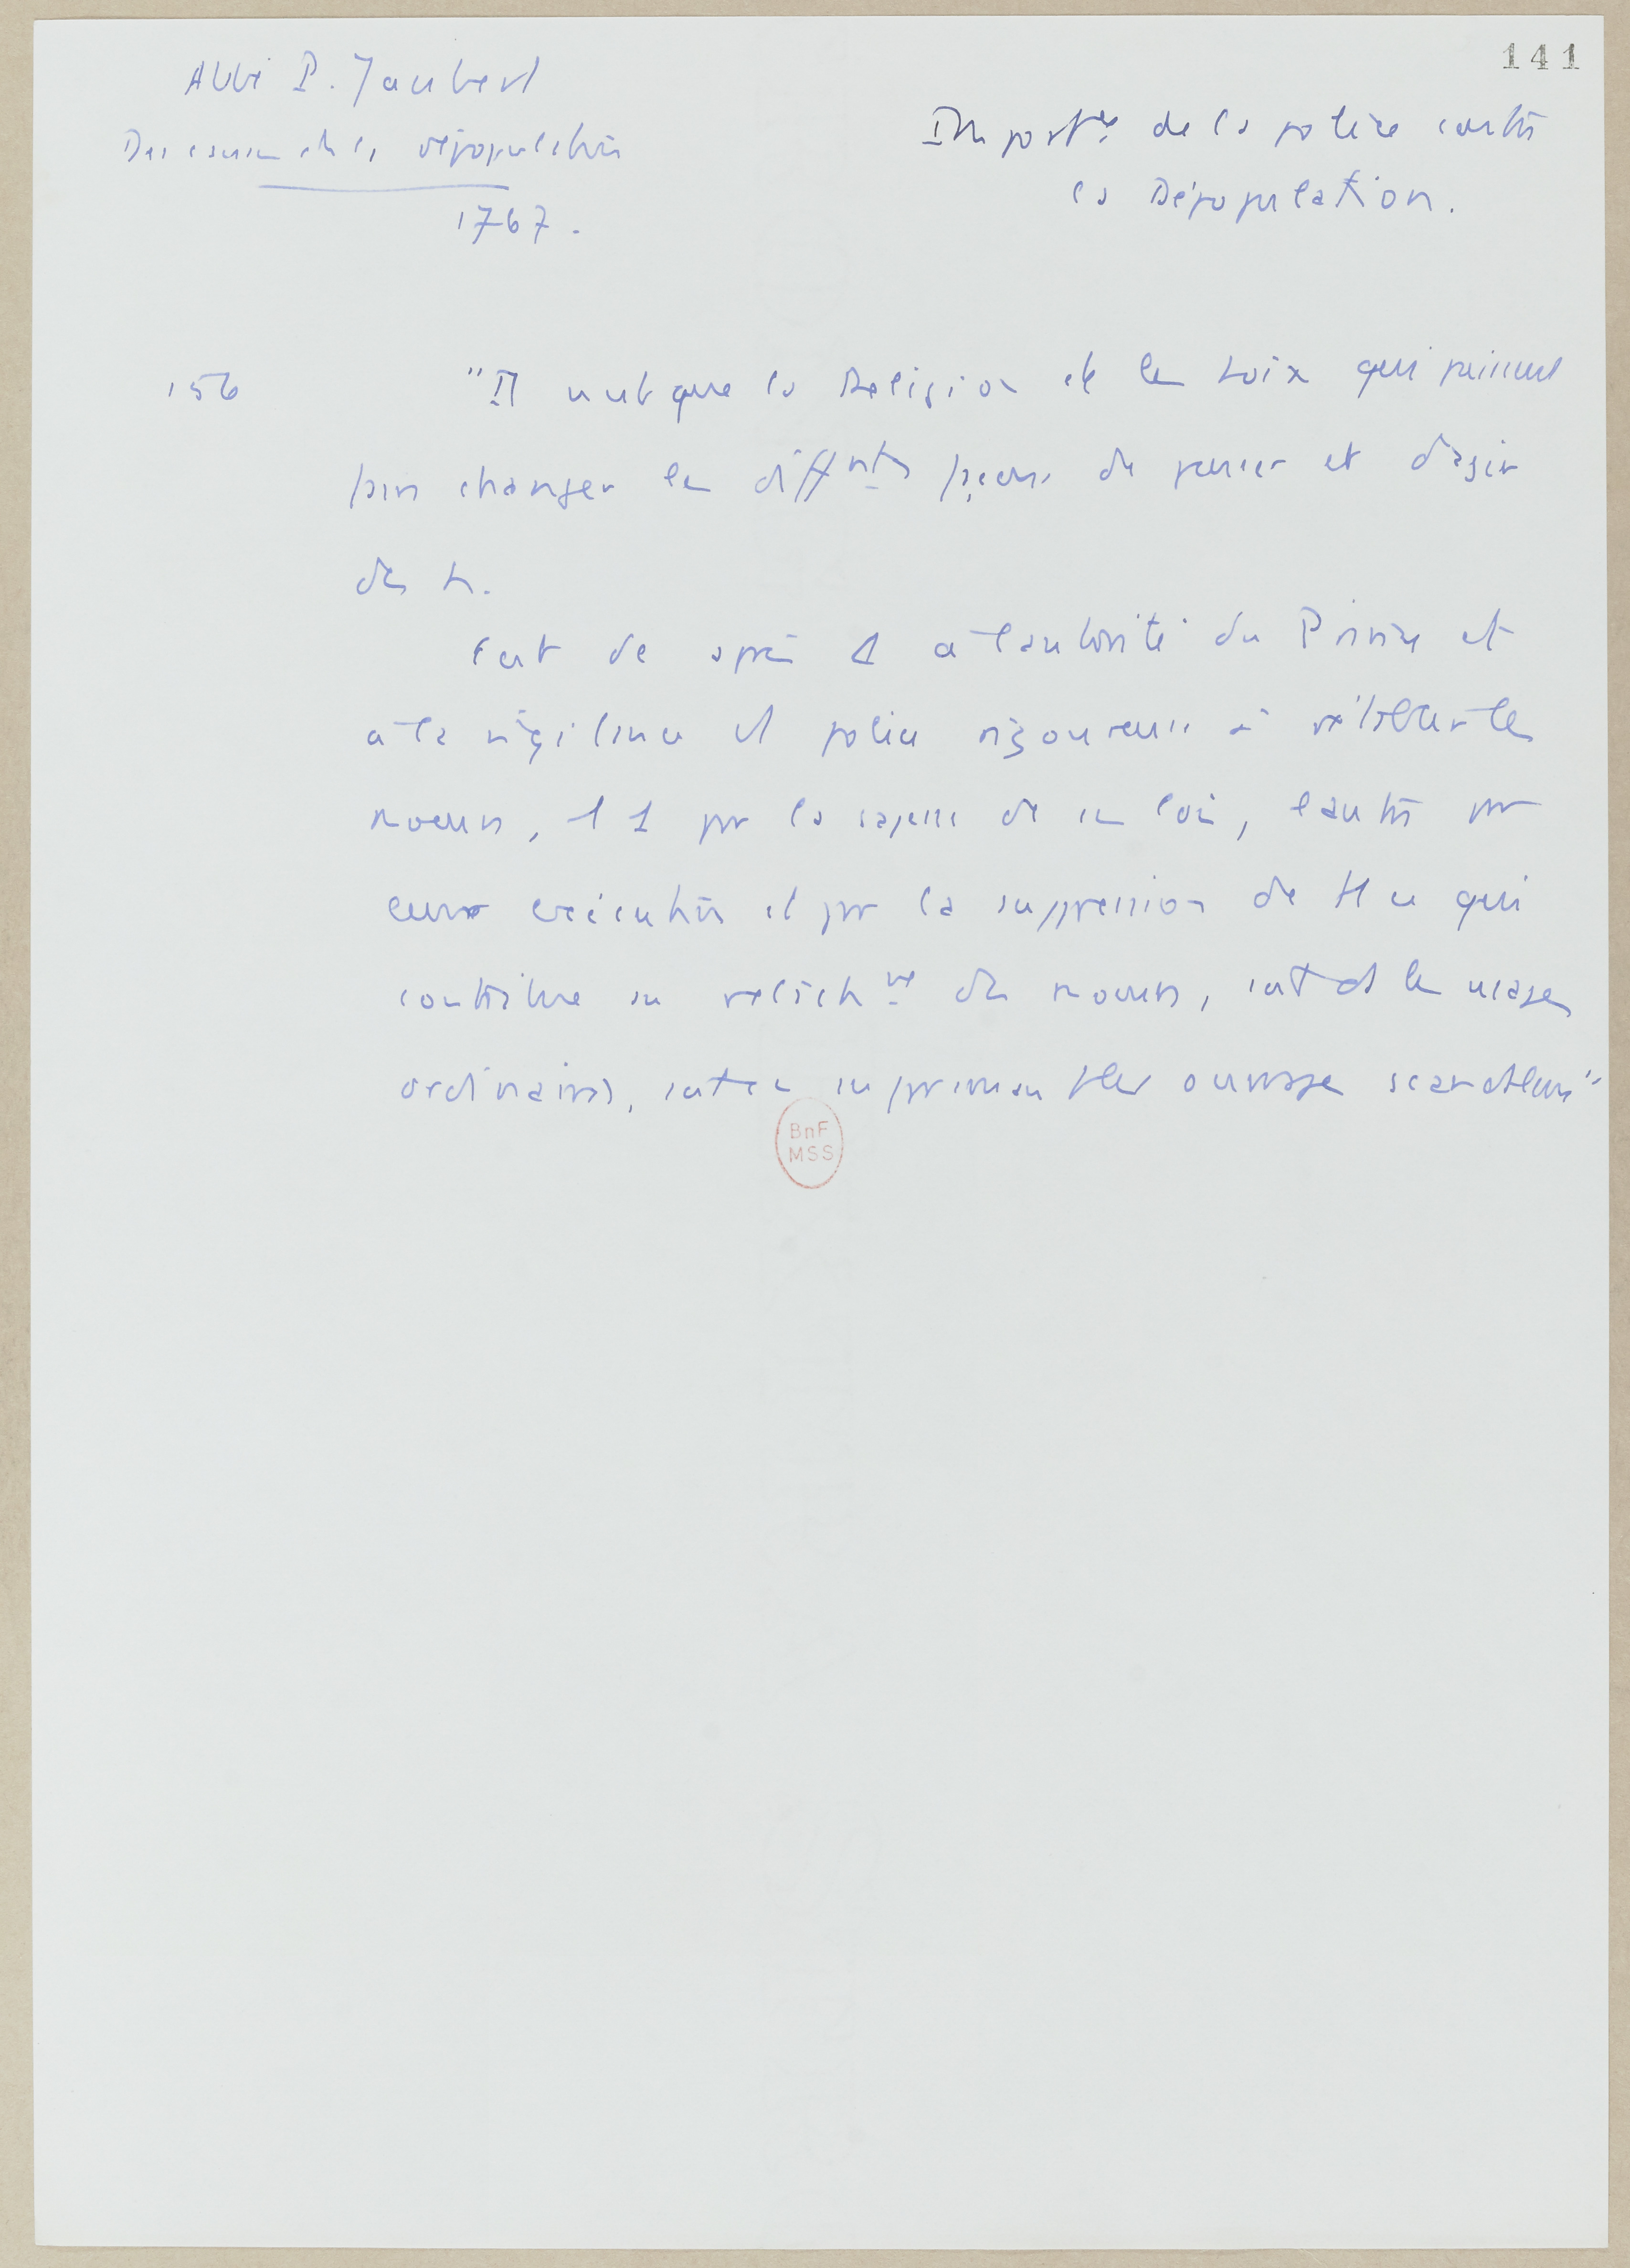 141
Abbé P. Jaubert
Des causes de la dépopulation
1767.
Importce de la police contre
la Dépopulation.
156
"Il n'est que la Religion et les Loix qui puissent
faire changer les diffnts façons de penser et d'agir
des h.
C'est de après à l'autorité du Prince et
à la vigilance et police rigoureuse à rétablir les
moeurs, l'1 par la sagesse de ses lois, l'autre par
leur exécution et par la suppression de tt ce qui
contribue au relachmt des moeurs, soit ds les usages
ordinaires, soit en supprimant les ouvrages scandaleux"
BnF
MSS